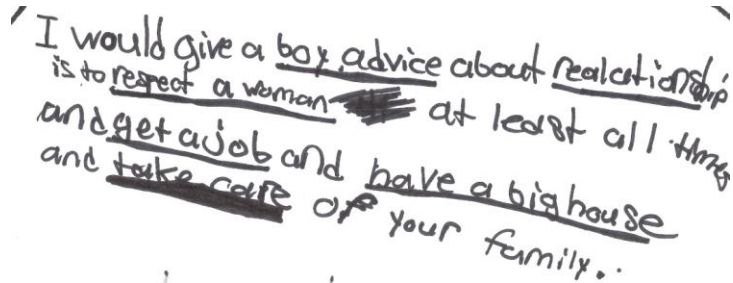 I would give a boy advice about realationship
is to respect a woman at least all times
and get a job and have a big house
and take care of your family.